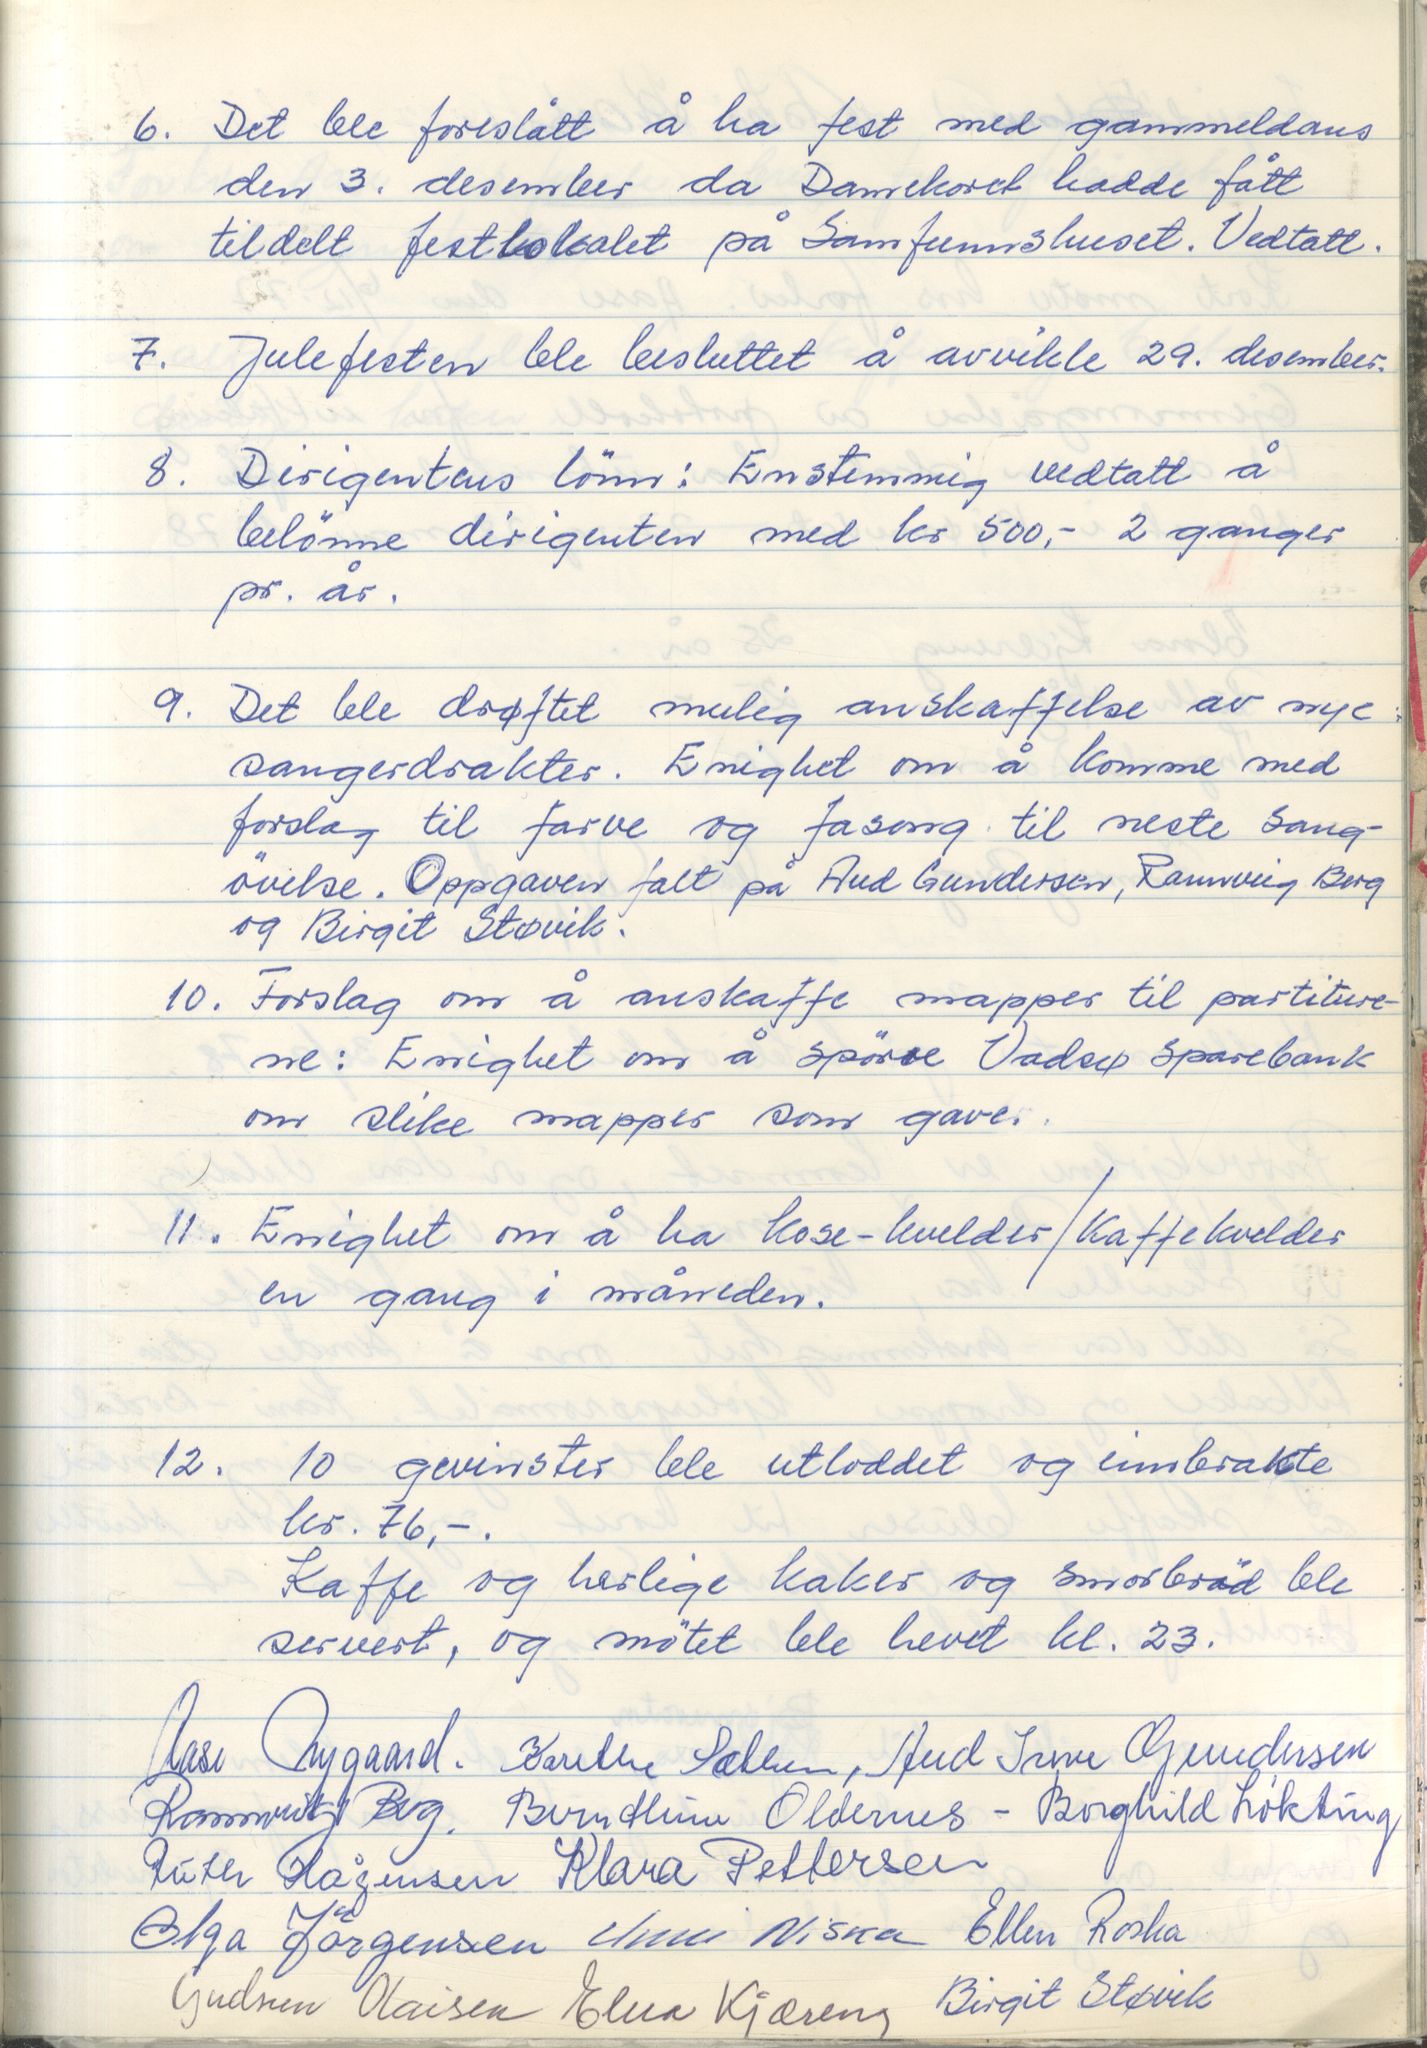 6. Det ble foreslått å ha fest med gammeldans
den 3. desember da Damekoret hadde fått
tildelt festlokalet på Samfunnshuset. Vedtatt.
7. Julefesten ble besluttet å avvikle 29. desember.
8. Dirigentens lönn: Enstemmig vedtatt å
belönne dirigenten med kr 500,- 2 ganger
pr. år.
9. Det ble drøftet mulig anskaffelse av nye
sangerdrakter. Enighet om å komme med
forslag til farve og fasong til neste sang-
övelse. Oppgaven falt på Aud Gundersen, Rannveig Berg
og Birgit Støvik.
10. Forslag om å anskaffe mapper til partiture-
ne: Enighet om å spörre Vadsø Sparebank
om slike mapper som gaver.
11. Enighet om å ha kose-kvelder/kaffekvelder
en gang i måneden.
12. 10 gevinster ble utloddet og innbrakte
kr. 76,-.
Kaffe og herlige kaker og smörbröd ble
servert, og mötet ble hevet kl. 23.
Aase Nygaard. Aud Irene Gundersen
Rannveig Berg. Oldernes - Borghild Løkting
Ruth Klara Pettersen
Olga Jörgensen Niska Ellen Roska
Olaisen Elna Kjæreng Birgit Støvik